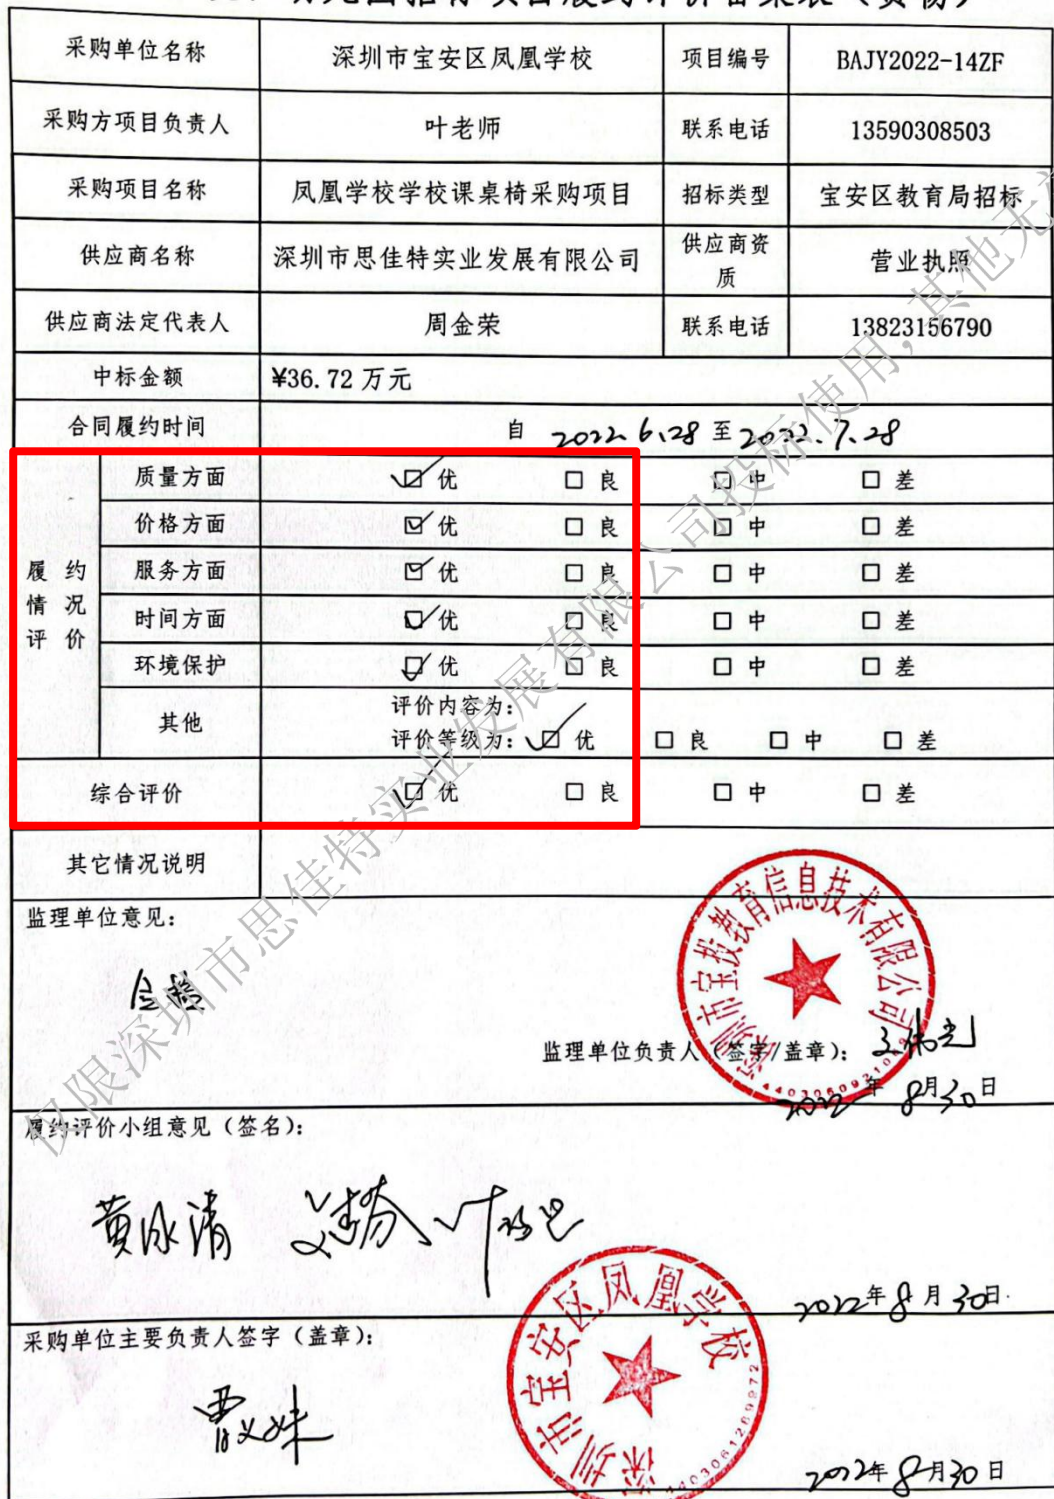 项目履约评价备案表（货物）
采购单位名称 深圳市宝安区凤凰学校 项目编号 BAJY2022-14ZF
采购方项目负责人 叶老师 联系电话 13590308503
采购项目名称 凤凰学校学校课桌椅采购项目 招标类型 宝安区教育局招标
供应商名称 深圳市思佳特实业发展有限公司 供应商资质 营业执照
供应商法定代表人 周金荣 联系电话 13823156790
中标金额 ¥36.72 万元
合同履约时间 自 2022.6.28 至 2022.7.28
履约情况评价
质量方面 ☑ 优 □ 良 □ 中 □ 差
价格方面 ☑ 优 □ 良 □ 中 □ 差
服务方面 ☑ 优 □ 良 □ 中 □ 差
时间方面 ☑ 优 □ 良 □ 中 □ 差
环境保护 ☑ 优 □ 良 □ 中 □ 差
其他 评价内容为：
评价等级为：☑ 优 □ 良 □ 中 □ 差
综合评价 ☑ 优 □ 良 □ 中 □ 差
其它情况说明
监理单位意见：
深圳市宝投教育信息技术有限公司
监理单位负责人（签字/盖章）：
2022年 8月30日
履约评价小组意见（签名）：
黄冰清
2022年 8月 30日
采购单位主要负责人签字（盖章）：
深圳市宝安区凤凰学校
4403061269972
2022年 8月30日
仅限深圳市思佳特实业发展有限公司投标使用，其他无